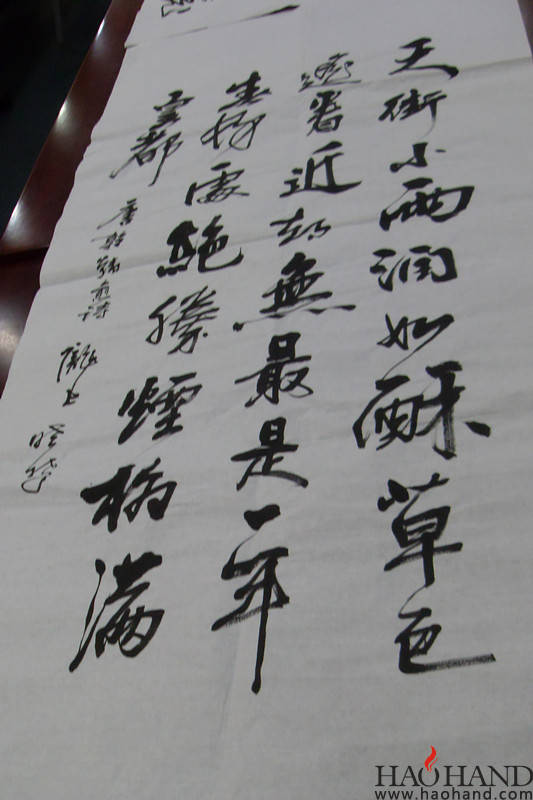 天街小雨润如酥草色
遥看近却無最是一年
春好處絶勝煙柳滿
皇都
唐 韓愈詩
HAOHAND
www.haohand.com